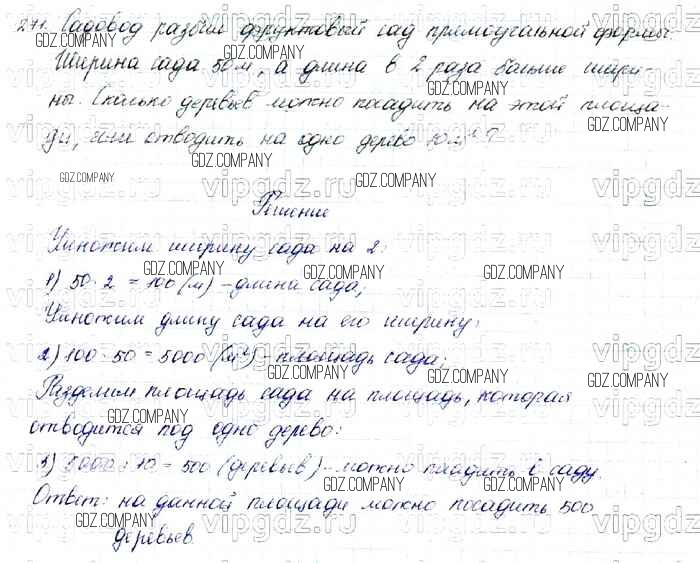 271. Садовод разбил фруктовый сад прямоугольной формы.
Ширина сада 50 м, а длина в 2 раза больше шири-
ны. Сколько деревьев можно посадить на этой площа-
ди, если отводить на одно дерево 10 м²?
Решение
Умножим ширину сада на 2:
1) 50 · 2 = 100 (м) - длина сада;
Умножим длину сада на его ширину:
2) 100 · 50 = 5000 (м²) - площадь сада;
Разделим площадь сада на площадь, которая
отводится под одно дерево:
3) 5000 : 10 = 500 (деревьев) - можно посадить в саду.
Ответ: на данной площади можно посадить 500
деревьев.
GDZ.COMPANY
vipgdz.ru